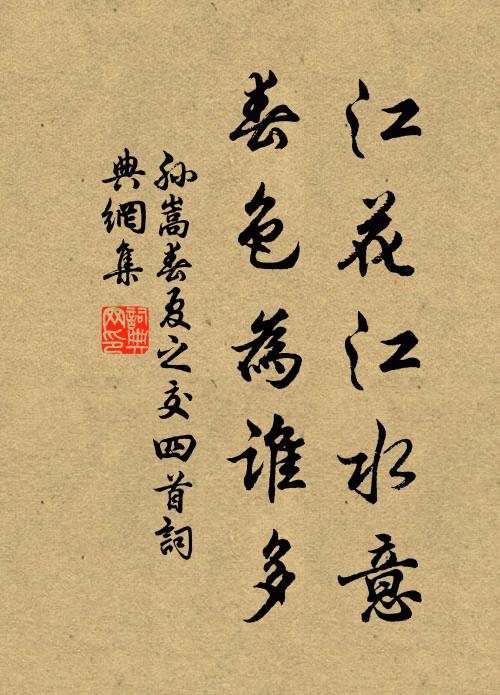 江花江水意
春色為誰多
孫嵩春夏之交四首詞
典網集
詞典
网印